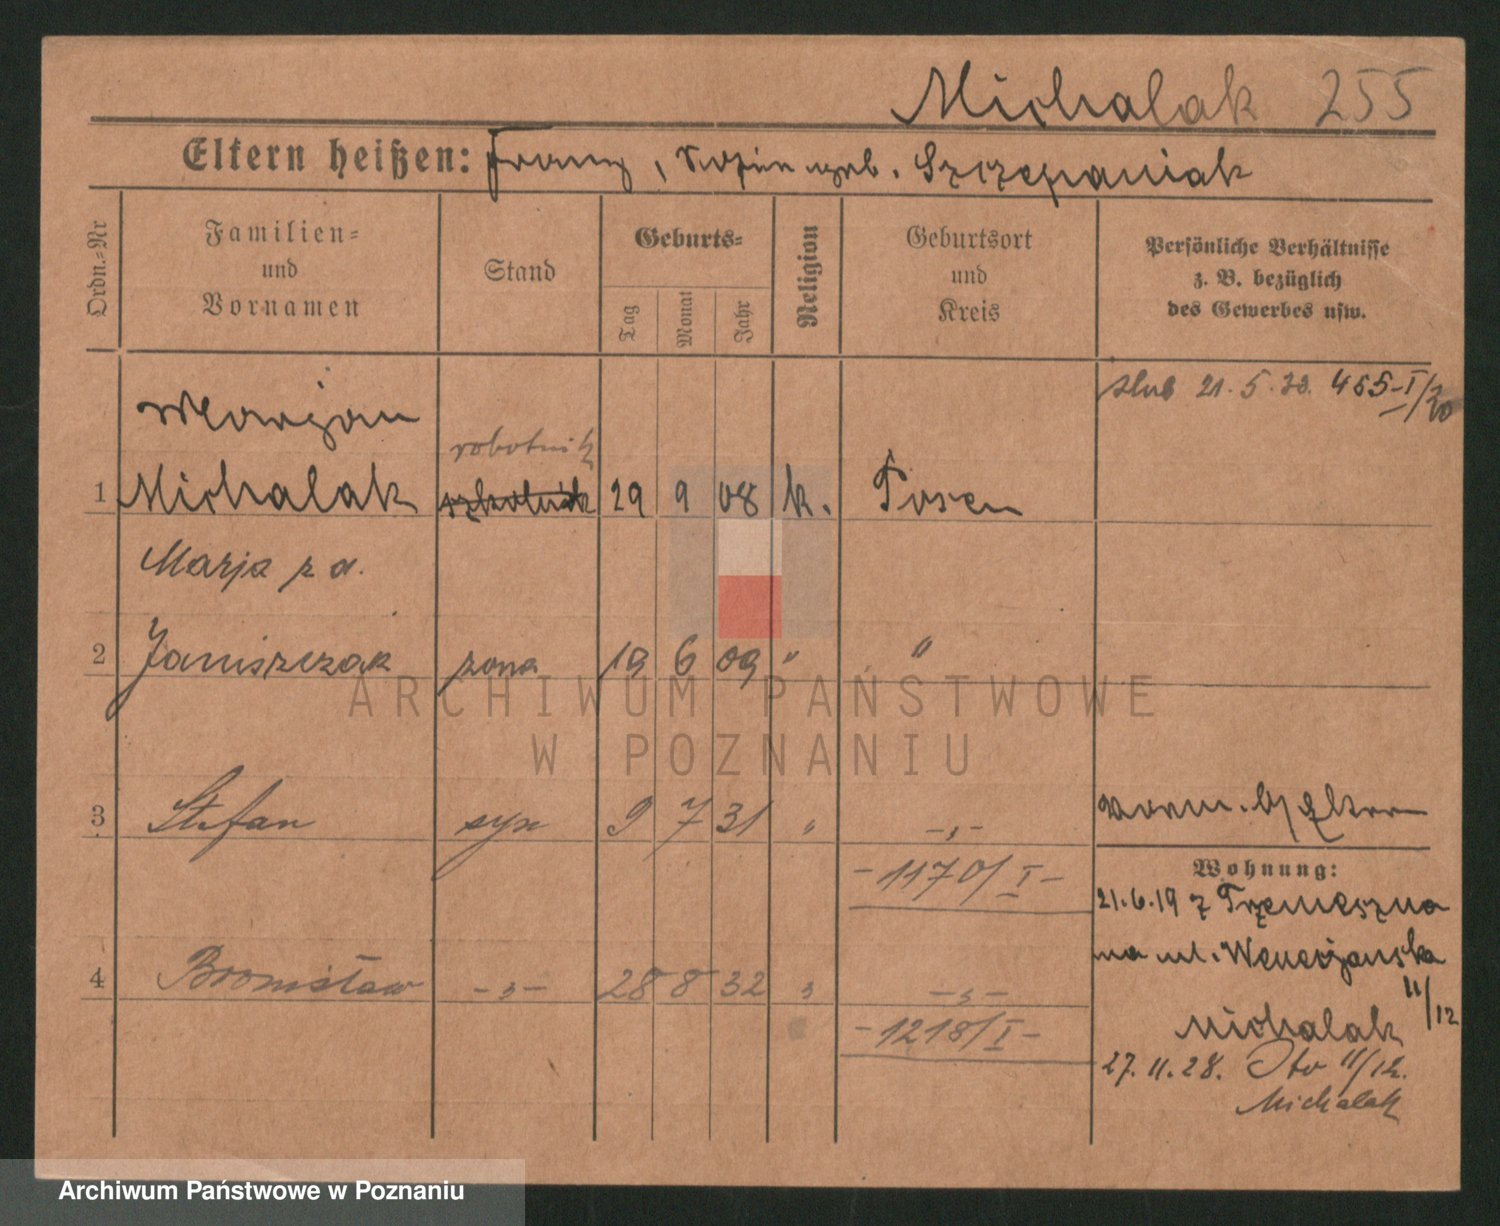 Michalak 255
Eltern heißen: Franz, geb. Szczepaniak
Ordn.-Nr
Familien-
und
Vornamen
Stand
Geburts-
Tag
Monat
Jahr
Religion
Geburtsort
und
Kreis
Persönliche Verhältnisse
z. B. bezüglich
des Gewerbes usw.
ślub 21.5.30. 455-I/30
Marjan
robotnik
1 Michalak szkolnik 29 9 08 k. Posen
Marja z d.
2 Janiszczak żona 19 6 09 " "
3 Stefan syn 9 7 31 " -"-
vorm. b/ Eltern
-1170/I-
Wohnung:
21.6.19 z Trzemeszna
na ul. Wenecjańska
11/12
4 Bronisław -"- 28 8 32 " -"-
-1218/I-
Michalak
27.11.28. 11/12.
Michalak
ARCHIWUM PAŃSTWOWE
W POZNANIU
Archiwum Państwowe w Poznaniu